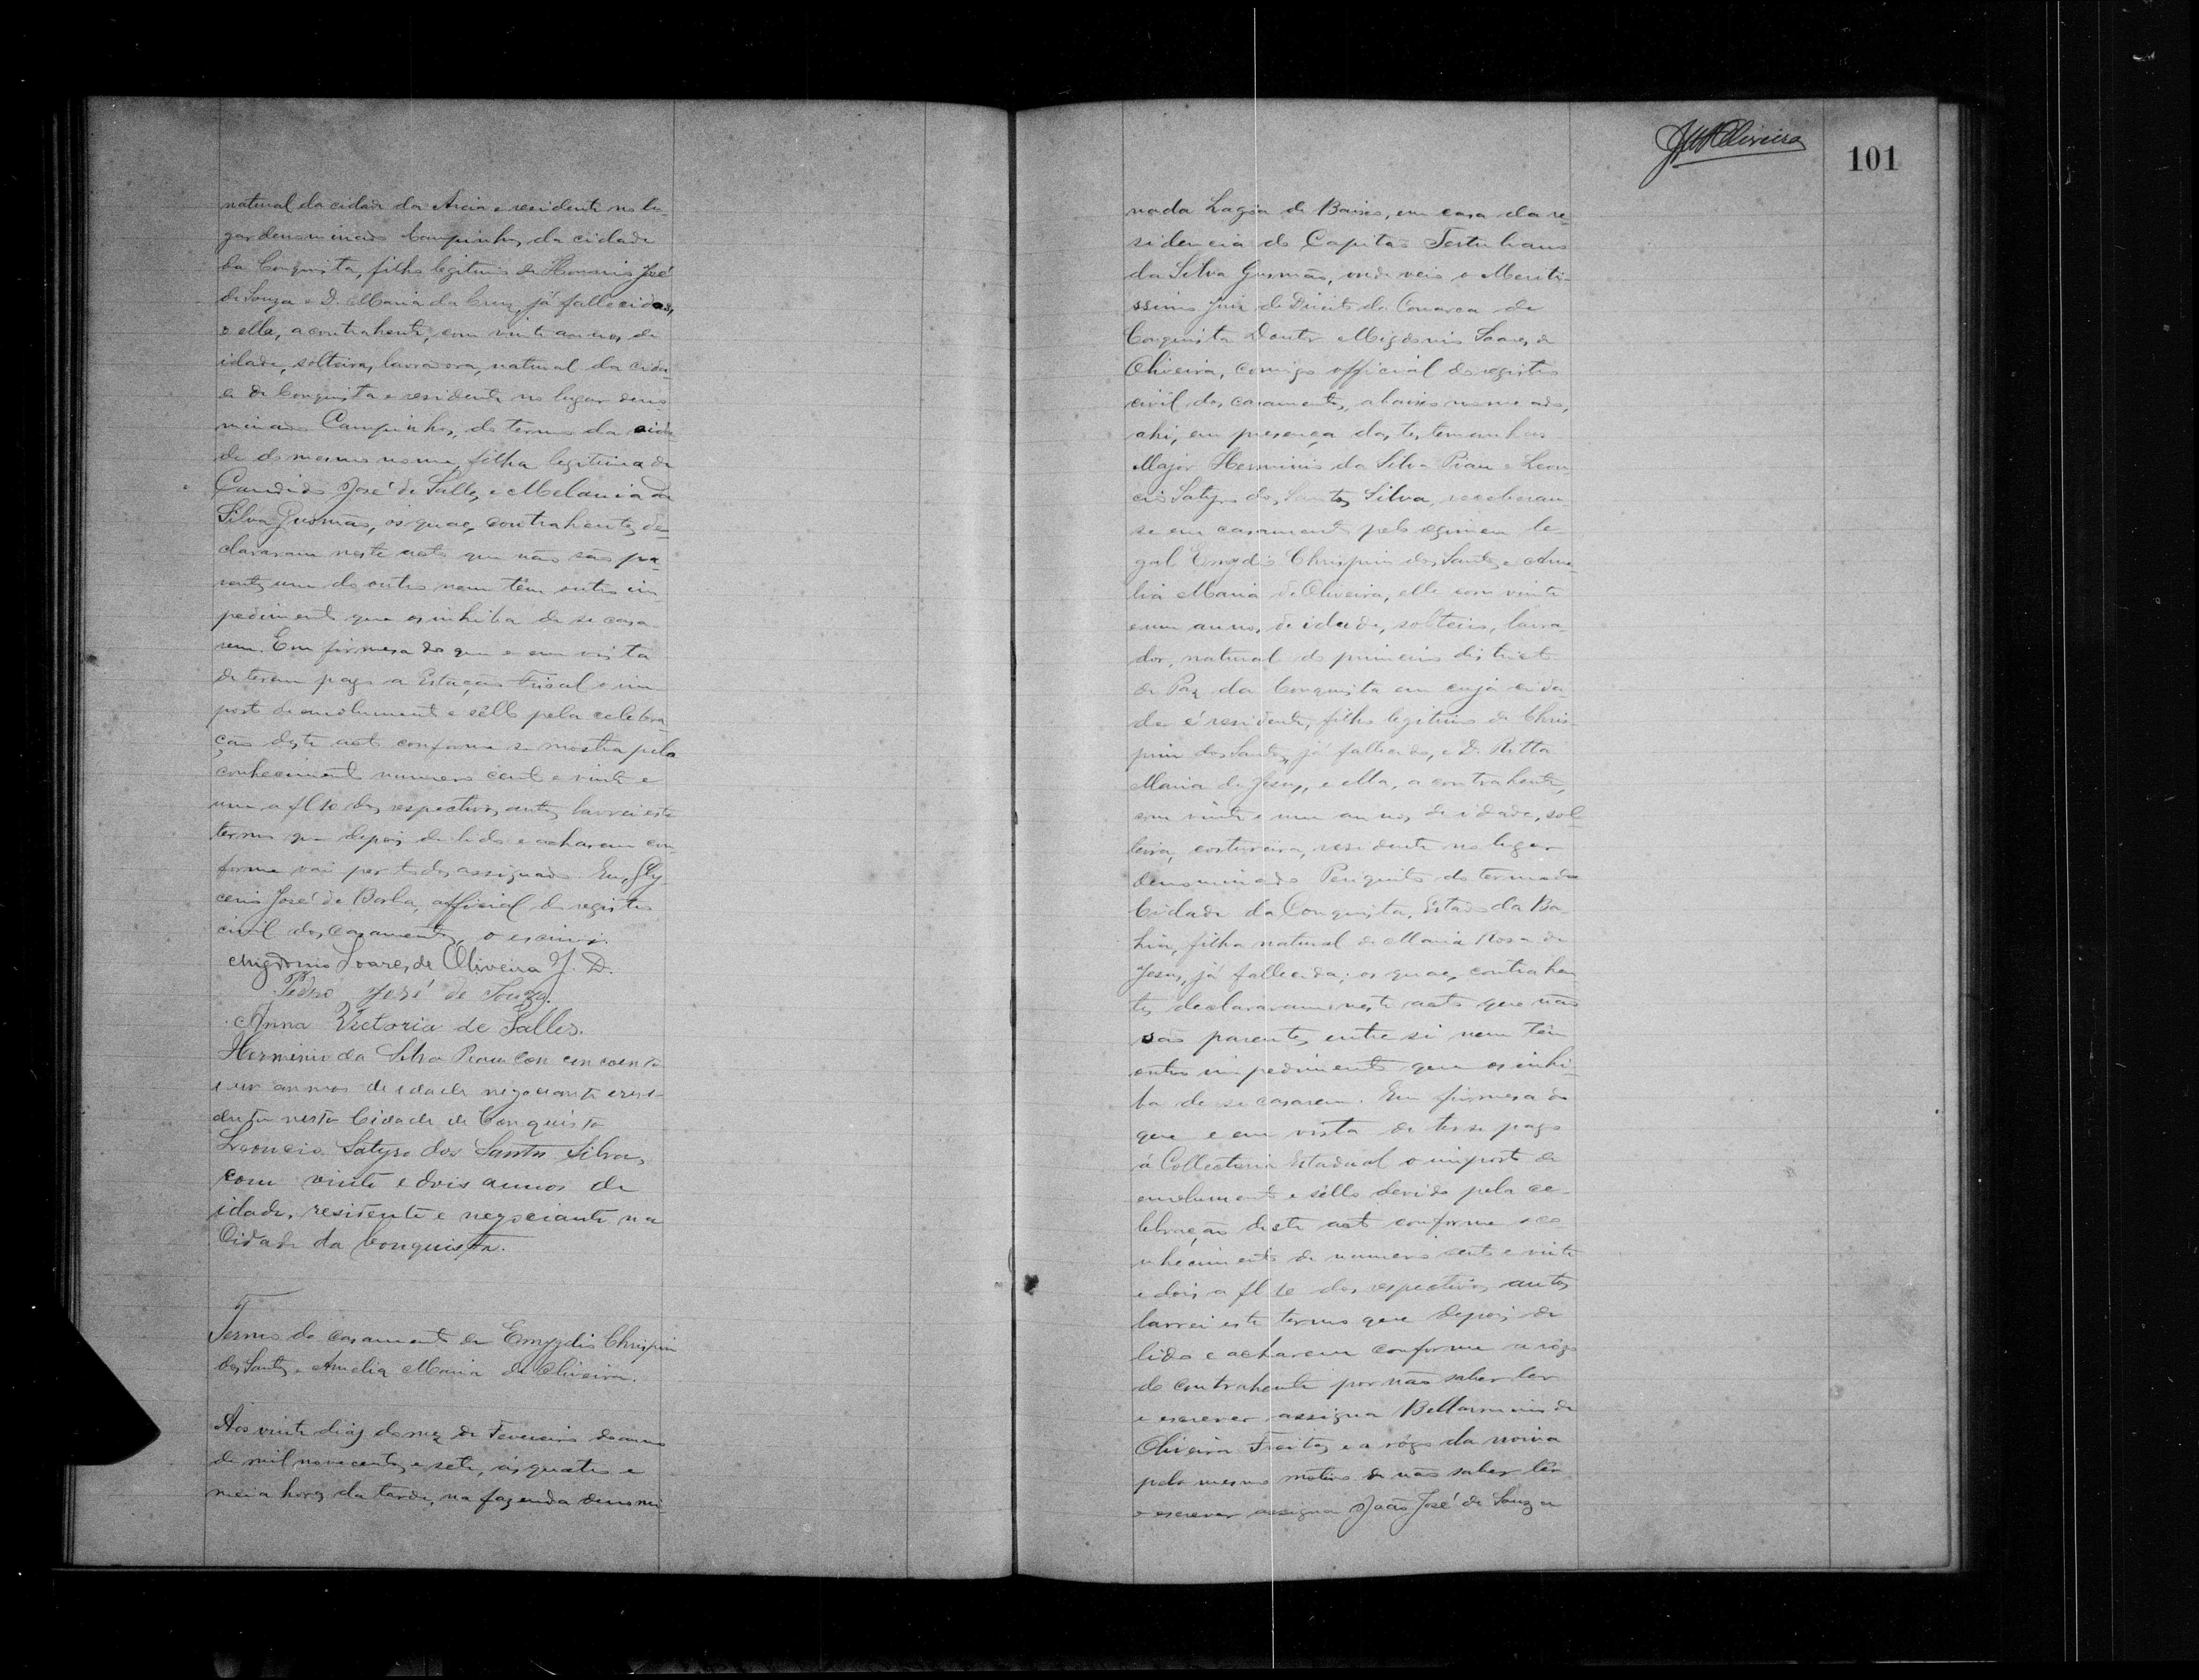 natural da cidade da Areia e residente no lu-
gar denominado Campinhos, da cidade
da Conquista, filho legitimo de José
de Souza e D. Maria da Cruz, já fallecidos,
e ella, a contrahente, com vinte annos de
idade, solteira, lavradora, natural da cida-
de da Conquista e residente no lugar deno-
minado Campinhos, do termo da cida-
de do mesmo nome, filha legitima de
Candido José de Salles e Melania da
Silva Gusmão, os quaes contrahentes de-
clararam neste acto que não são pa-
rentes um do outro nem têm outro im-
pedimento que os inhiba de se casa-
rem. Em firmesa do que e em vista
de terem pago a Estação Fiscal o im-
posto de emolumento e sêllo pela celebra-
ção deste acto conforme se mostra pelo
conhecimento numero cento e vinte e
um a fl 10 dos respectivos autos lavrei este
termo que depois de lido e acharem con
forme vai por todos assignado. Eu, Gly-
cerio José de Borba, official do registro
civil dos casamentos, o escrivi.
Migdonio Soares de Oliveira J. D.
Pedro José de Souza.
Anna Victoria de Salles.
Herminio da Silva Piau con cincoenta
e un annos de idade negociante e resi-
dente nesta Cidade de Conquista
Leoncio Satyro dos Santos Silva,
com vinte e dois annos de
idade, residente e negociante na
Cidade da Conquista.
Termo de casamento de Emygdio Chrispim
dos Santos e Amelia Maria de Oliveira.
Aos vinte dias do mez de Fevereiro do anno
de mil novecentos e sete, ás quatro e
meia horas da tarde, na fazenda denomi-
101
nada Lagôa de Baixo, em casa da re-
sidencia do Capitão Tertuliano
da Silva Gusmão, onde veio o Meriti-
ssimo Juiz de Direito da Comarca de
Conquista Doutor Migdonio Soares de
Oliveira, comigo official do registro
civil dos casamentos, abaixo nomeado,
ahi, em presença das testemunhas
Major Herminio da Silva Piau e Leon
cio Satyro dos Santos Silva, receberam-
se em casamento pelo regimen le-
gal Emygdio Chrispim dos Santos e Ame-
lia Maria de Oliveira, elle com vinte
e um annos de idade, solteiro, lavra-
dor, natural do primeiro districto
de Paz da Conquista em cuja cida-
de é residente, filho legitimo de Chris-
pim dos Santos, já fallecido, e D. Ritta
Maria de Jesus, e ella, a contrahente,
com vinte e um annos de idade, sol-
teira, costureira, residente no lugar
denominado Periquito do termo da
Cidade da Conquista, Estado da Ba-
hia, filha natural de Maria Rosa de
Jesus, já fallecida; os quaes contrahen
tes declararam neste acto que não
são parentes entre si nem têm
outro impedimento que os inhi-
ba de se casarem. Em firmesa do
que e em vista de ter-se pago
á Collectoria Estadual o imposto de
emolumento e sêllo devido pela ce-
lebração deste acto conforme o co-
nhecimento de numero cento e vinte
e dois a fl 10 dos respectivos autos
lavrei este termo que depois de
lido e acharem conforme a rôgo
do contrahente por não saber ler
e escrever assigna Bellarmino de
Oliveira Freitas e a rôgo da noiva
pelo mesmo motivo de não saber lêr
e escrever assigna João José de Souza